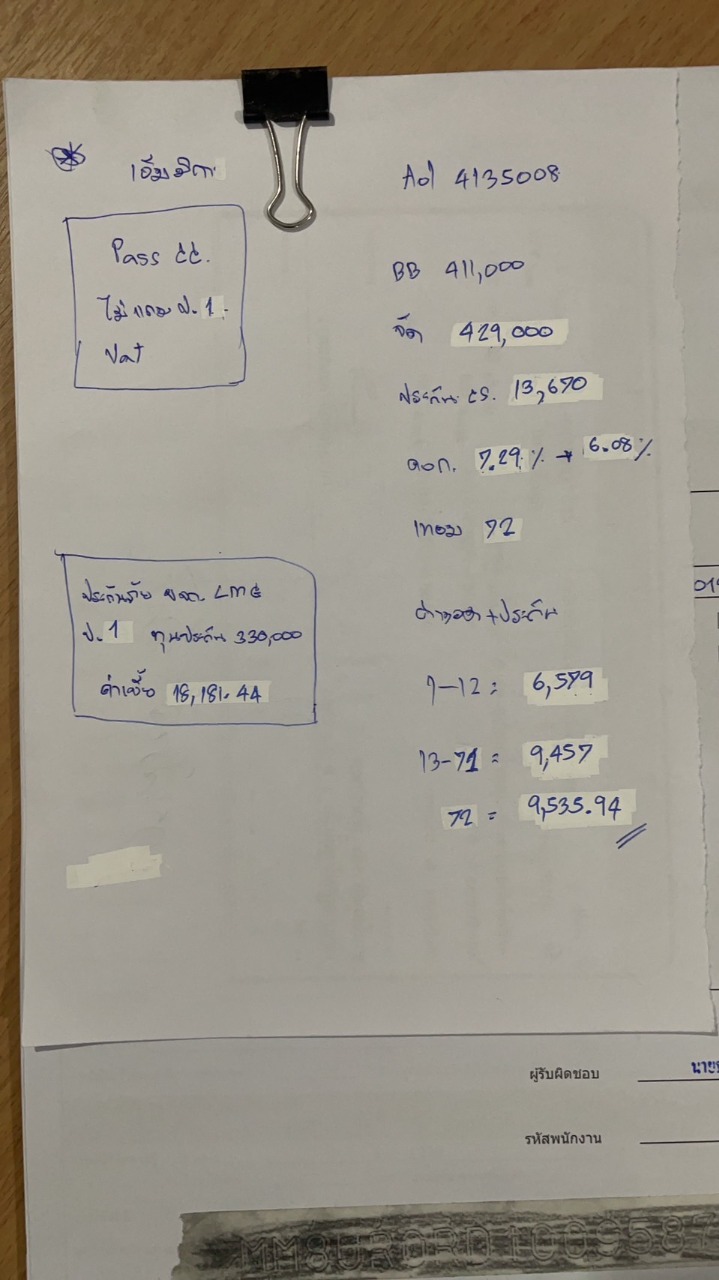 Aol 4135008
Pass cc.
ไม่แถม ป.1.
Vat
BB 411,000
จัด 429,000
ประกัน cs. 13,670
ดอก. 7.29% → 6.08%
เทอม 72
ค่างวด + ประกัน
1-12 = 6,579
13-71 = 9,457
72 = 9,535.94
ประกันภัย บจก. LMG
ป.1 ทุนประกัน 330,000
ค่าเบี้ย 18,181.44
ผู้รับผิดชอบ
รหัสพนักงาน